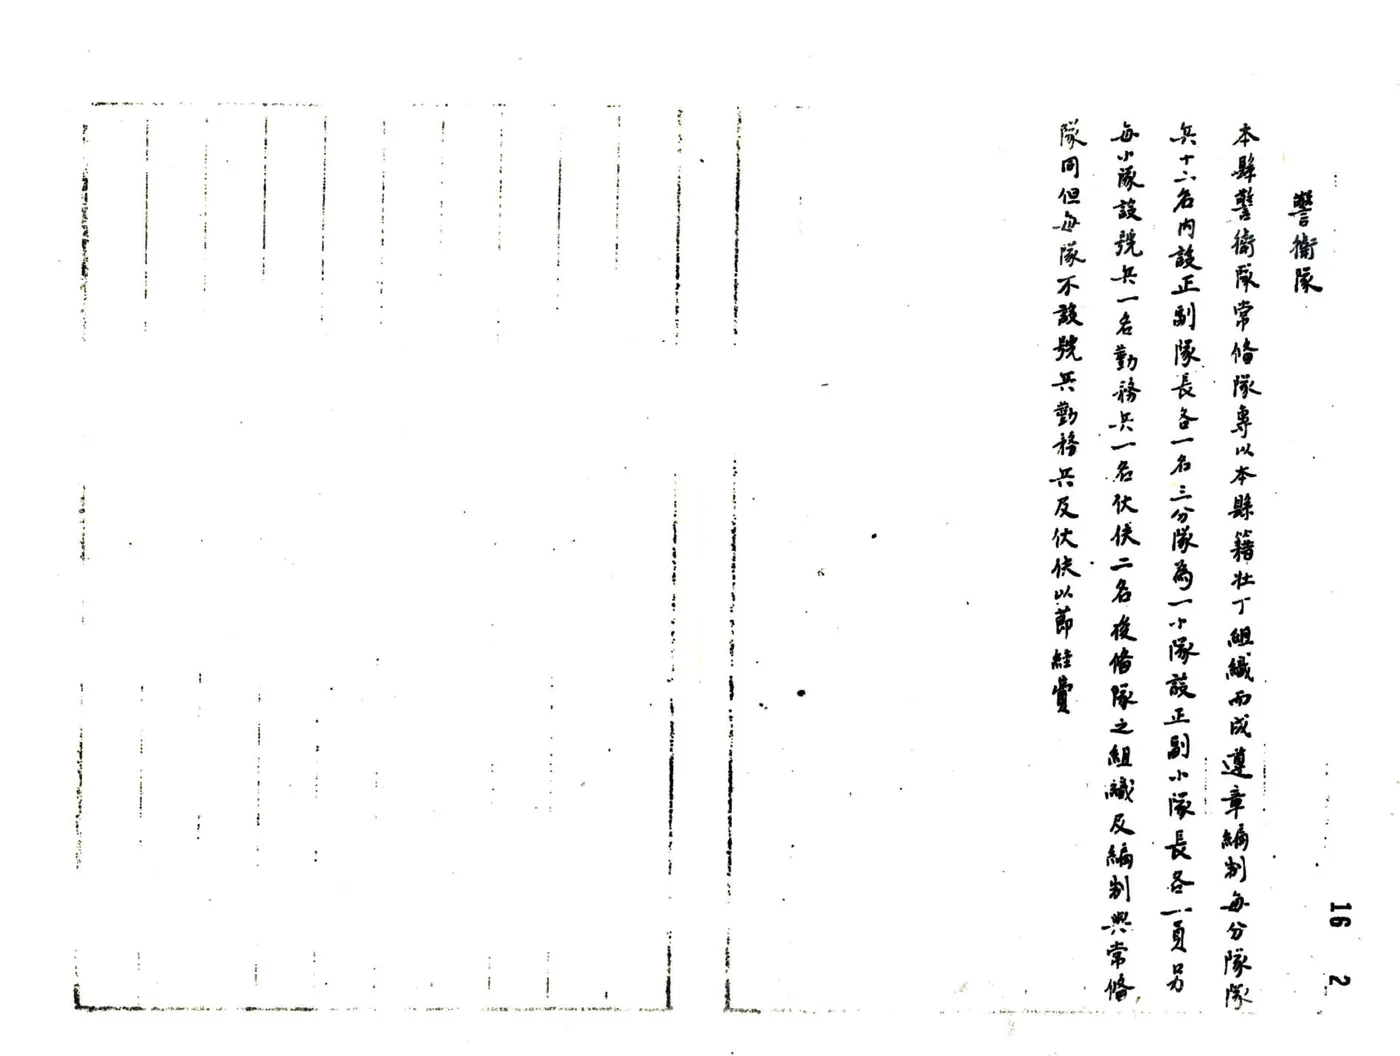 警衛隊
本縣警衛隊常備隊專以本縣籍壯丁組織而成遵章編制每分隊隊
兵十六名內設正副隊長各一名三分隊為一小隊設正副小隊長各一員另
每小隊設號兵一名勤務兵一名伙伕二名後備隊之組織及編制與常備
隊同但每隊不設號兵勤務兵及伙伕以節經費
16 2